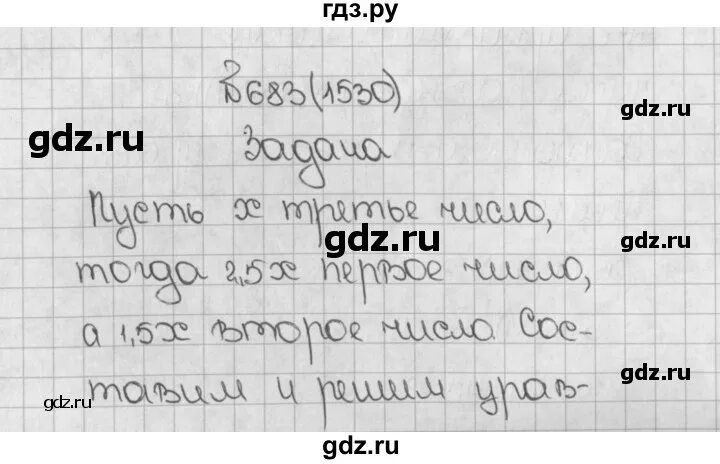 гдз.ру
В683(1530)
gdz.ru
Задача
gdz.ru
Пусть х третье число,
gdz.ru
тогда 2,5х первое число,
а 1,5х второе число. Сос-
gdz.ru
gdz.ru
тавим и решим урав-
gdz.ru